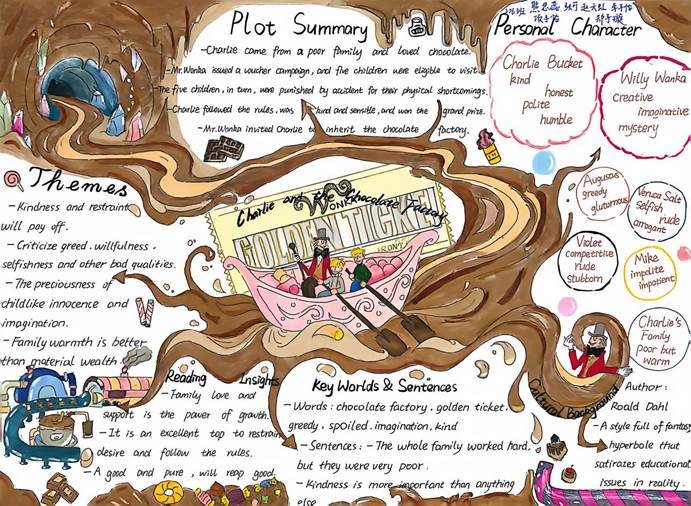 Plot Summary
-Charlie came from a poor family and loved chocolate.
-Mr.Wonka issued a voucher campaign, and five children were eligible to visit.
-The five children, in turn, were punished by accident for their physical shortcomings.
-Charlie followed the rules, was kind and sensible, and won the grand prize.
-Mr.Wonka invited Charlie to inherit the chocolate factory.
Personal Character
Charlie Bucket
kind
honest
polite
humble
Willy Wonka
creative
imaginative
mystery
Augustus
greedy
gluttonous
Veruca Salt
selfish
rude
arrogant
Violet
competitive
rude
stubborn
Mike
impolite
impatient
Charlie's
Family
poor but
warm
Themes
-Kindness and restraint
will pay off.
-Criticize greed, willfulness,
selfishness and other bad qualities.
-The preciousness of
childlike innocence and
imagination.
-Family warmth is better
than material wealth.
Charlie and the Chocolate Factory
WONKA
GOLDEN TICKET
Reading Insights
-Family love and
support is the power of growth.
-It is an excellent top to restrain
desire and follow the rules.
-A good and pure, will reap good.
Key Worlds & Sentences
-Words: chocolate factory, golden ticket,
greedy, spoiled, imagination, kind
-Sentences: -The whole family worked hard,
but they were very poor.
-Kindness is more important than anything
else
Cultural Background
Author:
Roald Dahl
-A style full of fantasy
hyperbole that
satirazes educational
issues in reality.